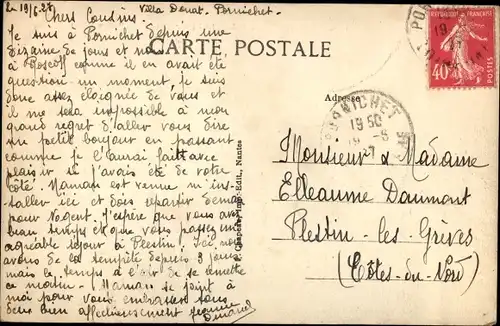 le 19/6-27 Villa Donat. Pornichet.
Chers Cousins.
Je suis à Pornichet depuis une
dizaine de jours et non
à Roscoff comme il en avait été
question un moment, je suis
donc assez éloignée de vous et
il me sera impossible à mon
grand regret d'aller vous dire
un petit bonjour en passant
comme je l'aurai fait avec
plaisir si j'avais été de votre
côté. Maman est venue m'ins-
taller ici et doit repartir demain
pour Nogent. J'espère que vous avez
beau temps et que vous passez un
agréable séjour à Plestin. Ici nous
avons de la tempête depuis 3 jours
mais le temps a l'air de se remettre
ce matin. Maman se joint à
moi pour vous embrasser tous
deux bien affectueusement
CARTE POSTALE
Adresse
Monsieur & Madame
Elleaume Daumont
Plestin-les-Grèves
(Côtes-du-Nord)
PORNICHET
19 50
19 -6
27
40c
POSTES
Nantes